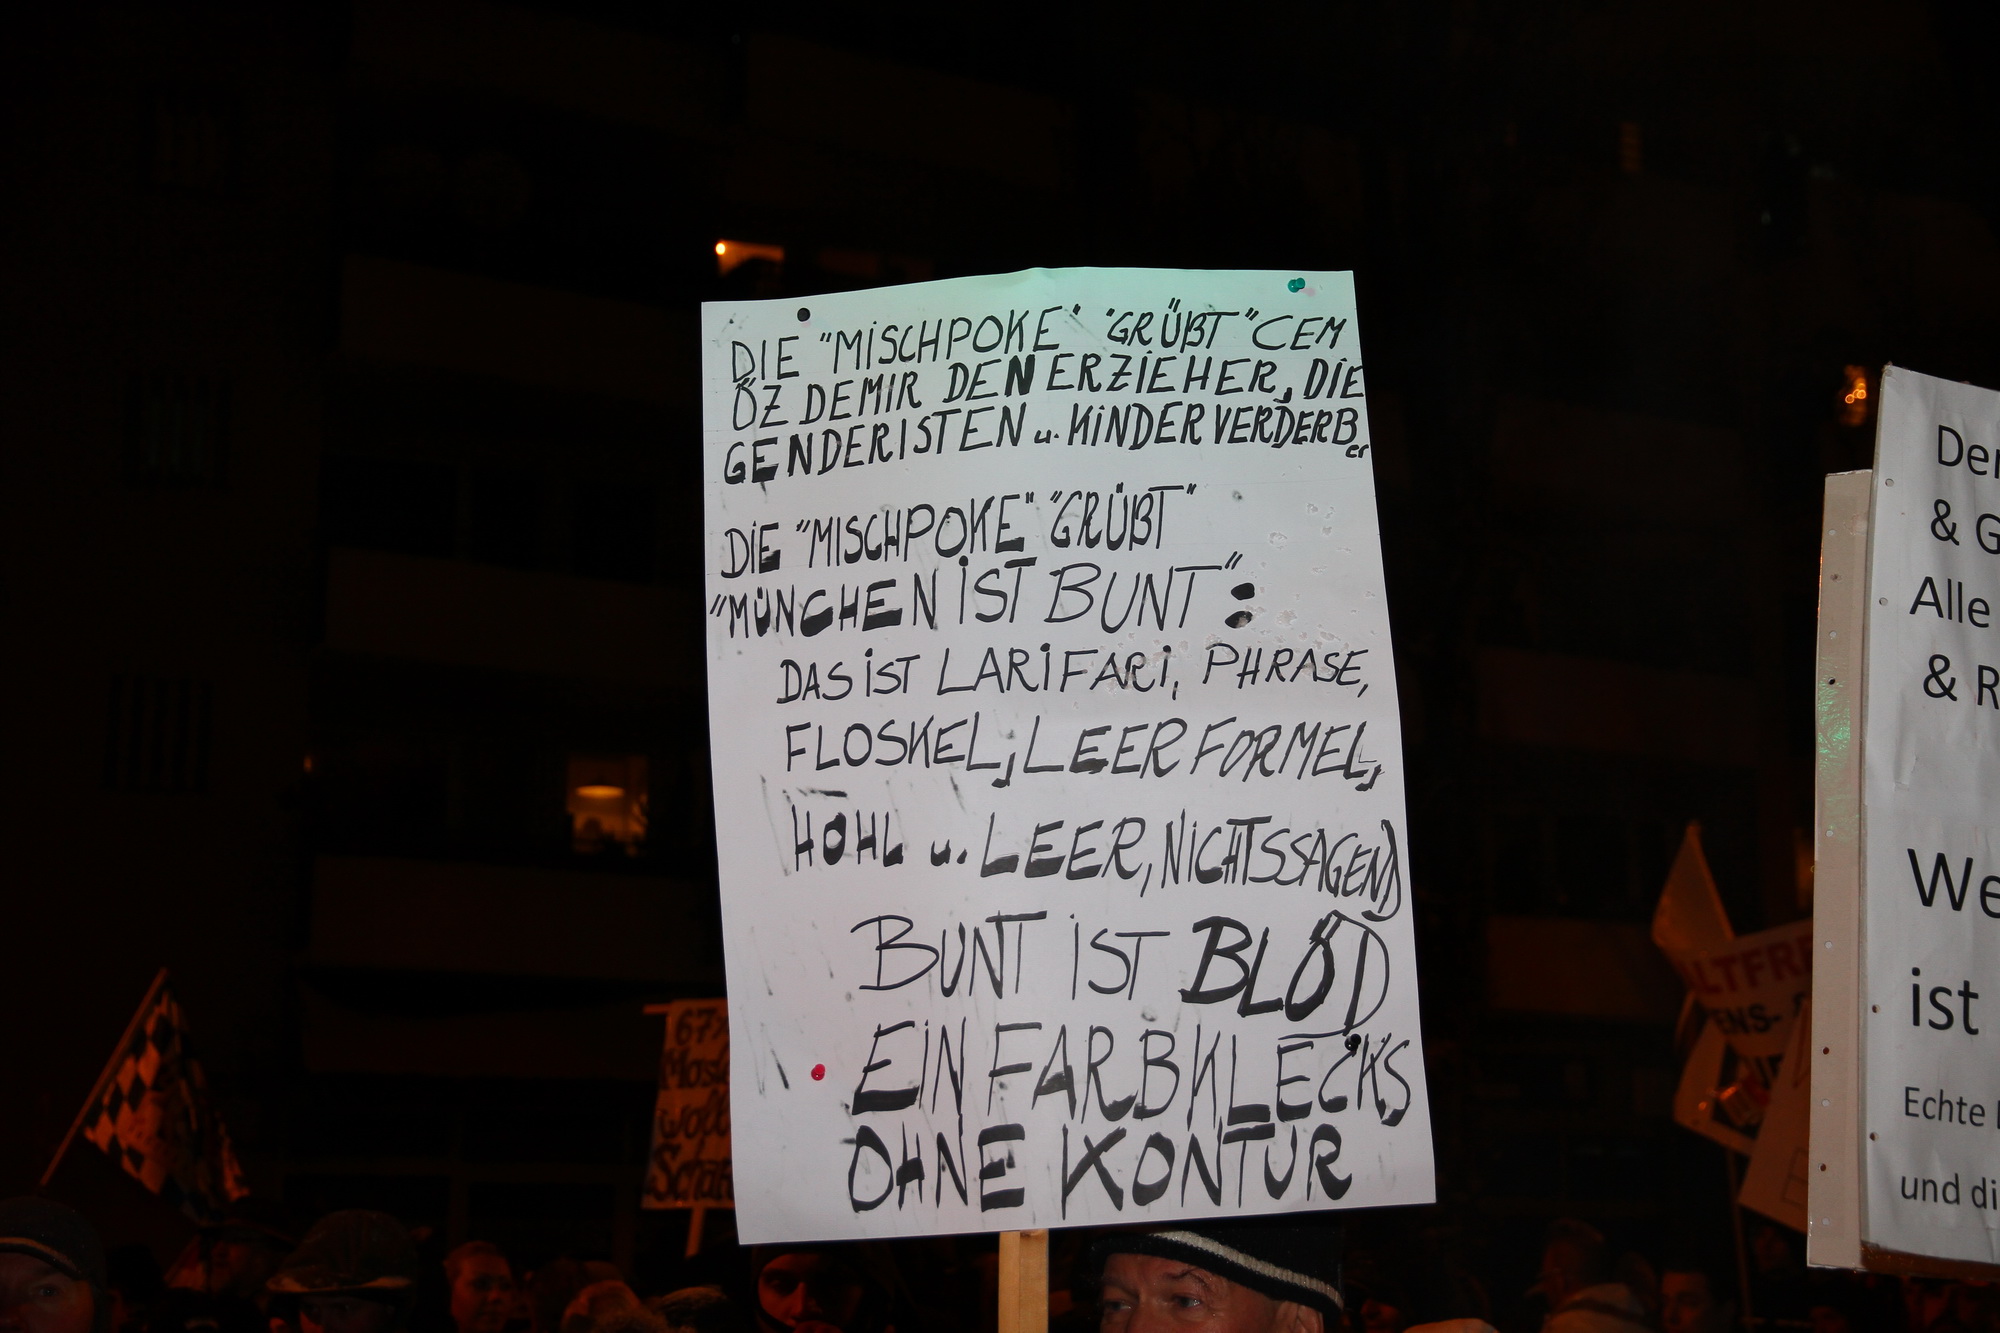 DIE "MISCHPOKE" "GRÜßT" CEM
ÖZDEMIR DEN ERZIEHER, DIE
GENDERISTEN u. KINDERVERDERBer
DIE "MISCHPOKE" "GRÜßT"
"MÜNCHEN IST BUNT":
DAS IST LARIFARI, PHRASE,
FLOSKEL, LEERFORMEL,
HOHL u. LEER, NICHTSSAGEND
BUNT IST BLÖD
EIN FARBKLECKS
OHNE KONTUR
67%
&
Alle
&
ist
Echte
und